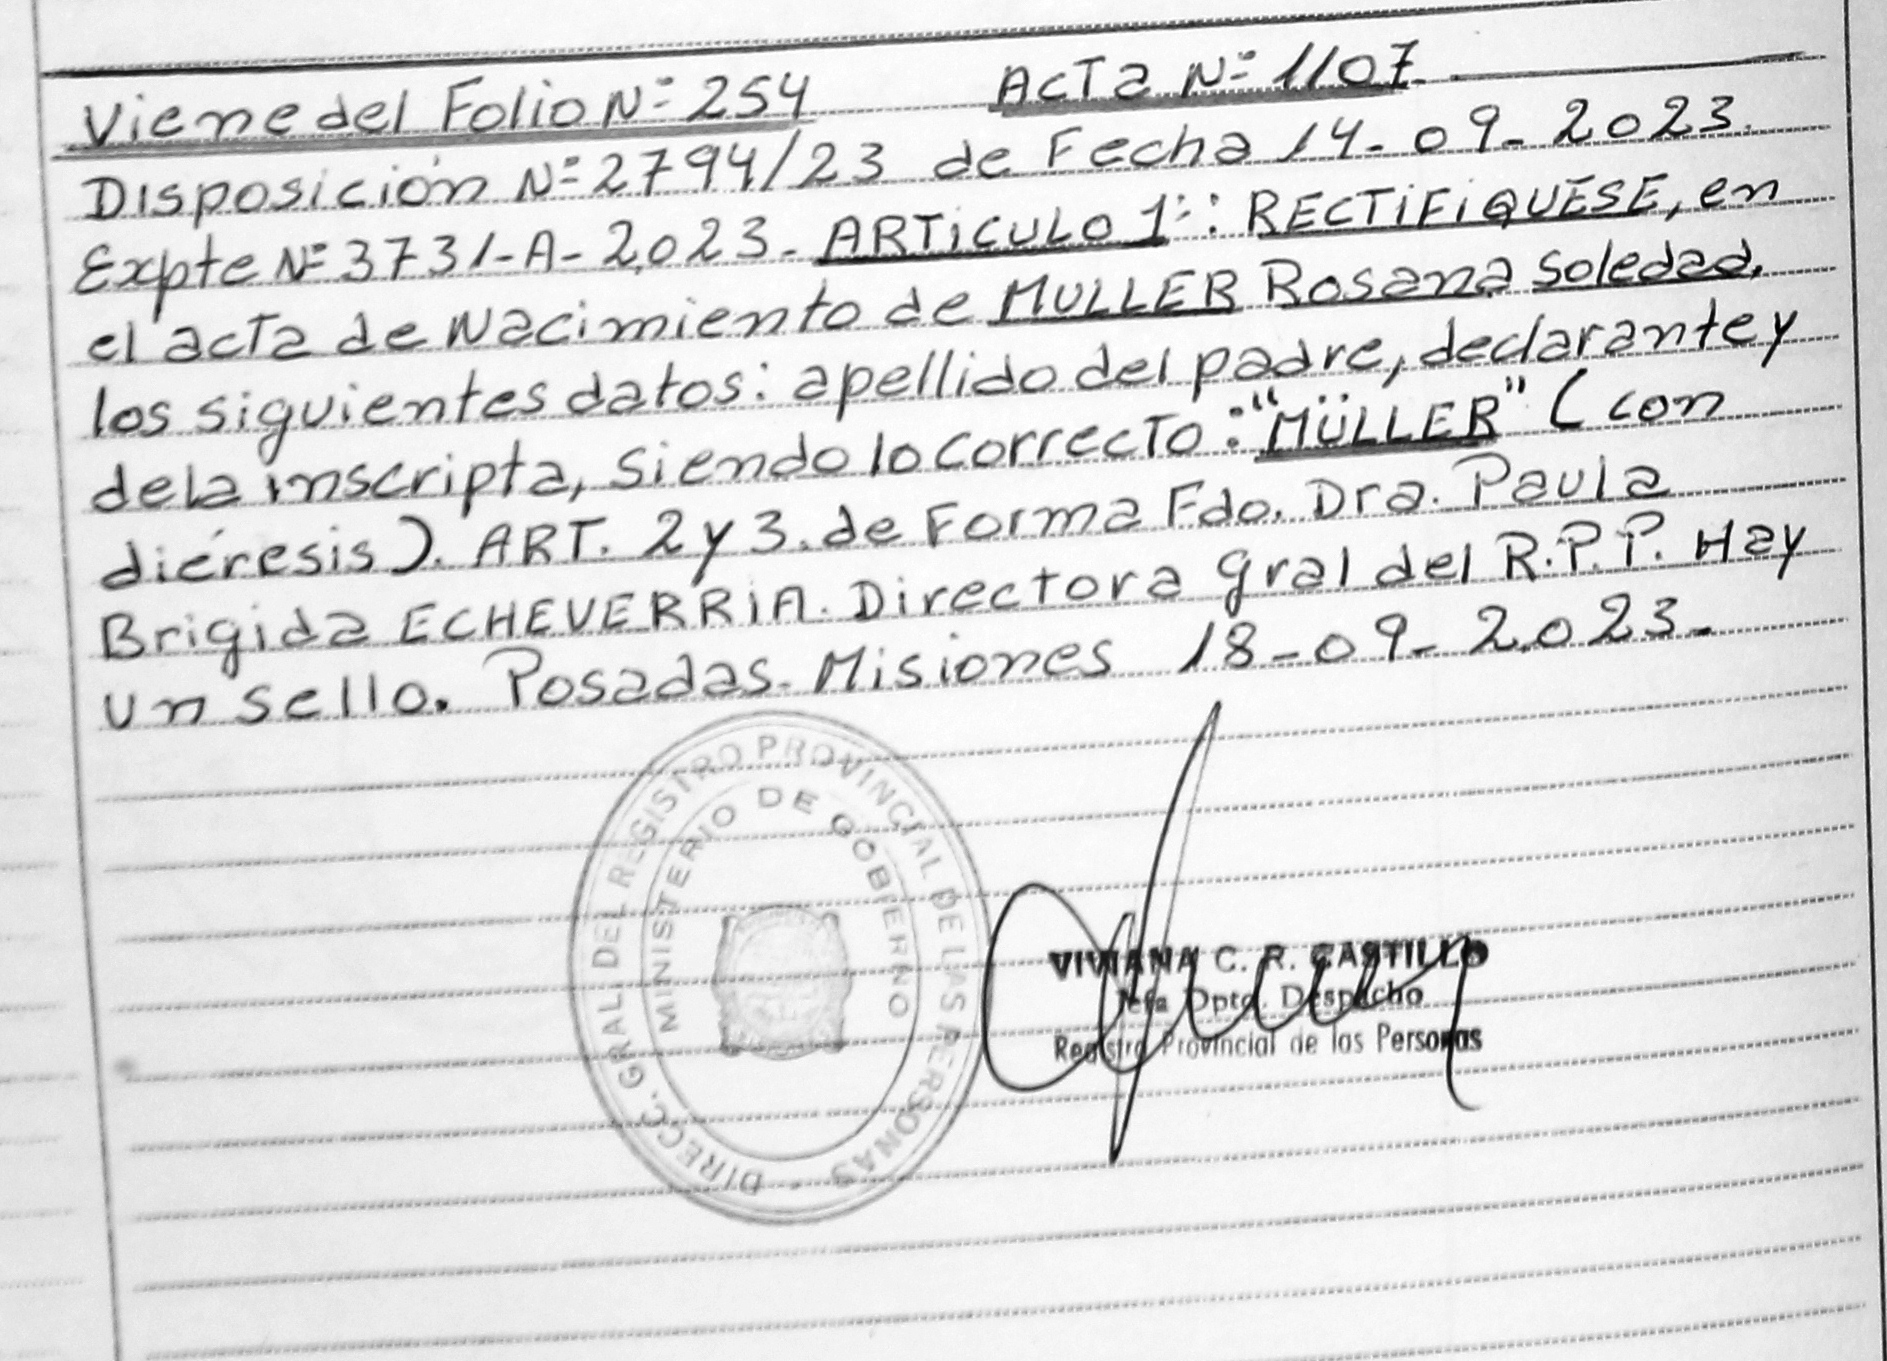 Viene del Folio Nº 254 Acta Nº 1107.
Disposición Nº 2794/23 de Fecha 14-09-2023.
Expte Nº 3731-A-2023. ARTiCULO 1º: RECTiFiQUESE, en
el acta de Nacimiento de MULLER Rosana Soledad,
los siguientes datos: apellido del padre, declarante y
de la inscripta, siendo lo correcto: "MÜLLER" (con
diéresis). ART. 2 y 3. de Forma Fdo. Dra. Paula
Brigida ECHEVERRiA. Directora gral del R.P.P. Hay
un sello. Posadas. Misiones 18-09-2023-
DIRECC. GRAL DEL REGISTRO PROVINCIAL DE LAS PERSONAS
MINISTERIO DE GOBIERNO
VIVIANA C. R. CASTILLO
Jefa Dpto. Despacho
Registro Provincial de las Personas